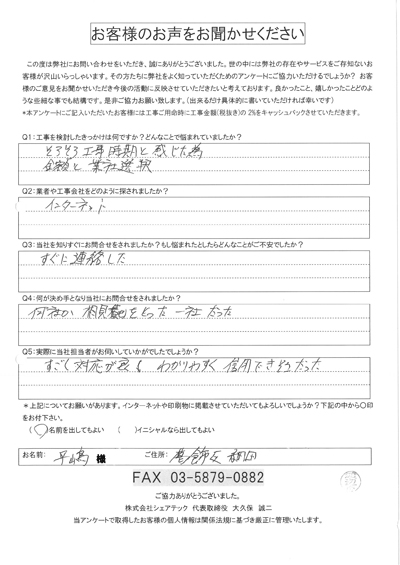 お客様のお声をお聞かせください
この度は弊社にお問い合わせをいただき、誠にありがとうございました。世の中には弊社の存在やサービスをご存知ないお
客様が沢山いらっしゃいます。その方たちに弊社をよく知っていただくためのアンケートにご協力いただけるでしょうか？ お客
様のご意見をお聞かせいただき今後の活動に反映させていただきたいと考えております。良かったこと、嬉しかったことどのよ
うな些細な事でも結構です。是非ご協力お願い致します。（出来るだけ具体的に書いていただければ幸いです）
*本アンケートにご記入いただいたお客様には工事ご用命時に工事金額(税抜き)の2%をキャッシュバックさせていただきます。
Q1：工事を検討したきっかけは何ですか？どんなことで悩まれていましたか？
そろそろ工事時期と感じた為
金額と業者選択
Q2：業者や工事会社をどのように探されましたか？
インターネット
Q3：当社を知りすぐにお問合せをされましたか？もし悩まれたとしたらどんなことがご不安でしたか？
すぐに連絡した
Q4：何が決め手となり当社にお問合せをされましたか？
何社か 相見積をとった 一社だった
Q5：実際に当社担当者がお伺いしていかがでしたでしょうか？
すごし対応が良く わかりやすく 信用できそうだった
*上記についてお願いがあります。インターネットや印刷物に掲載させていただいてもよろしいでしょうか？下記の中から〇印
をお付下さい。
(〇)名前を出してもよい ( )イニシャルなら出してもよい
お名前： 平嶋 様 ご住所： 葛飾区
FAX 03-5879-0882
ご協力ありがとうございました。
株式会社シェアテック 代表取締役 大久保 誠二
当アンケートで取得したお客様の個人情報は関係法規に基づき厳正に管理いたします。